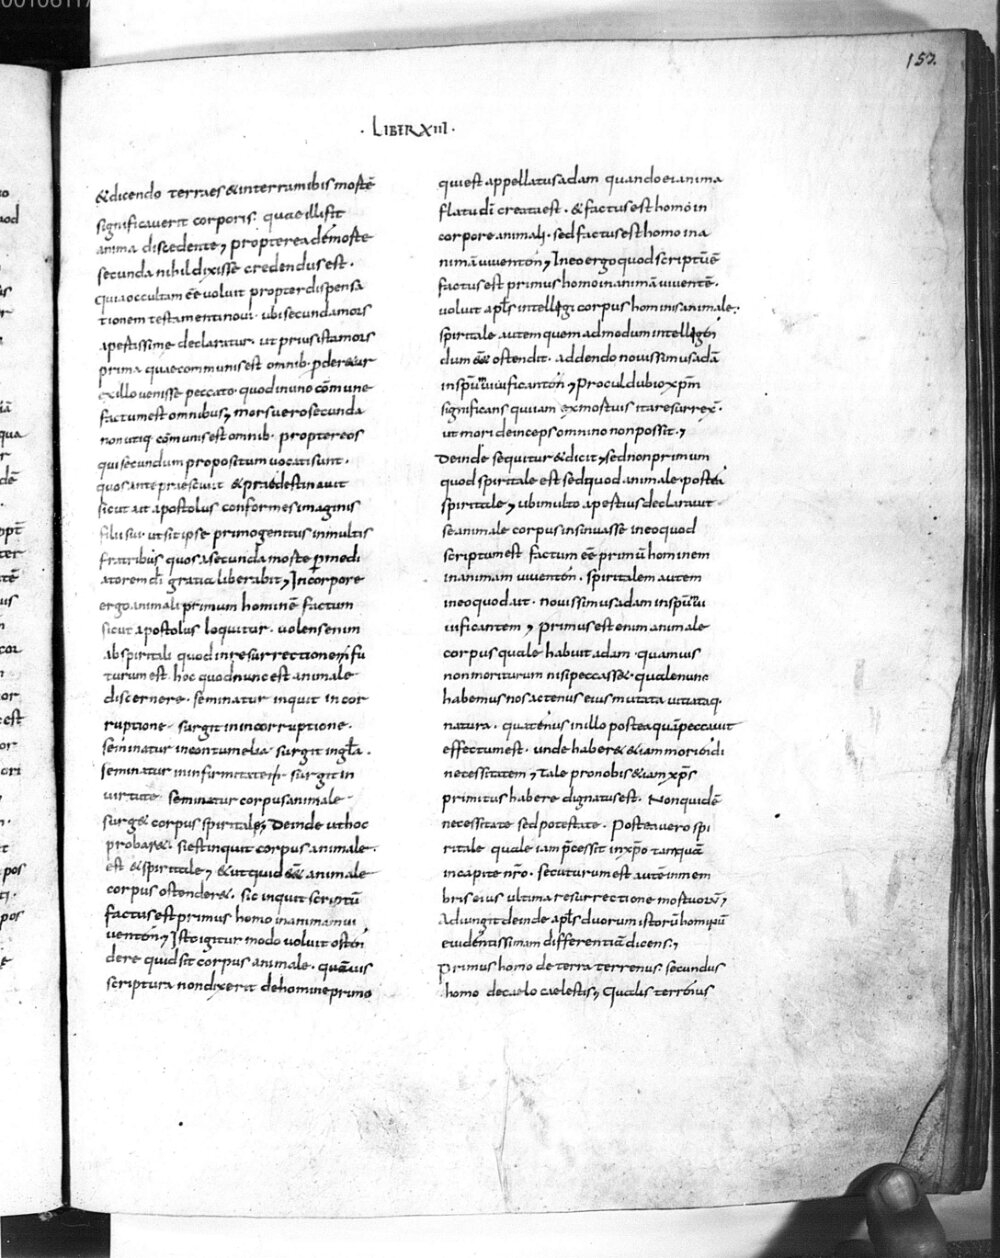 157.
· LIBER XIII ·
& dicendo terra es & in terram ibis mortē
significaverit corporis. quae illi fit
anima discedente, propterea de morte
secunda nihil dixisse credendus est.
quia occultam eē voluit propter dispensa
tionem testamenti novi. ubi secunda mors
apertissime declaratur. ut prius ista mors
prima quae communis est omnib. proderetur
ex illo venisse peccato. quod in uno cōmune
factum est omnibus, mors vero secunda
non utiq. cōmunis est omnib. propter eos
qui secundum propositum vocati sunt.
quos ante praescivit & praedestinavit
sicut ait apostolus conformes imaginis
filii sui ut sit ipse primogenitus in multis
fratribus quos a secunda morte p medi
atorem dī gratia liberabit, In corpore
ergo animali primum hominē factum
sicut apostolus loquitur. volens enim
ab spiritali quod in resurrectione fu
turum est. hoc quod nunc est animale
discernere. seminatur inquit in cor
ruptione. surgit in incorruptione.
seminatur in contumelia surgit in gla.
seminatur in infirmitate surgit in
virtute seminatur corpus animale
surg& corpus spiritale, Deinde ut hoc
probar&. si est inquit corpus animale.
est & spiritale, & ut quid ess& animale
corpus ostender&. sic inquit scriptū
factus est primus homo in animam vi
ventem, Isto igitur modo voluit osten
dere quid sit corpus animale. quāvis
scriptura non dixerit de homine primo
qui est appellatus adam quando ei anima
flatu dī creata est. & factus est homo in
corpore animali. sed factus est homo in a
nimā viventem, In eo ergo quod scriptū ē
factus est primus homo in animā viventē.
voluit apls intellegi corpus hominis animale.
spiritale autem quem ad modum intellegen
dum ess& ostendit. addendo novissimus adā
in spm vivificantem, Procul dubio xpm
significans qui iam ex mortuis ita resurrex.
ut mori deinceps omnino non possit.,
Deinde sequitur & dicit, sed non primum
quod spiritale est sed quod animale. postea
spiritale, ubi multo apertius declaravit
se animale corpus insinuasse in eo quod
scriptum est factum eē primū hominem
in animam viventem. spiritalem autem
in eo quod ait. novissimus adam in spm vi
vificantem, Primus est enim animale
corpus quale habuit adam. quamvis
non moriturum nisi peccass&. quale nunc
habemus nos actenus eius mutata vitiataq.
natura. quatenus in illo postea quā peccavit
effectum est. unde haber& &iam moriendi
necessitatem, Tale pro nobis &iam xps
primitus habere dignatus est. Non quidē
necessitate sed potestate. Postea vero spi
ritale quale iam pcessit in xpo tanquā
in capite nro. secuturum est autē in mem
bris eius ultima resurrectione mortuorum,
Adiungit deinde apls duorum istorū hominū
evidentissimam differentiā dicens.,
Primus homo de terra terrenus. secundus
homo de caelo caelestis, Qualis terrenus